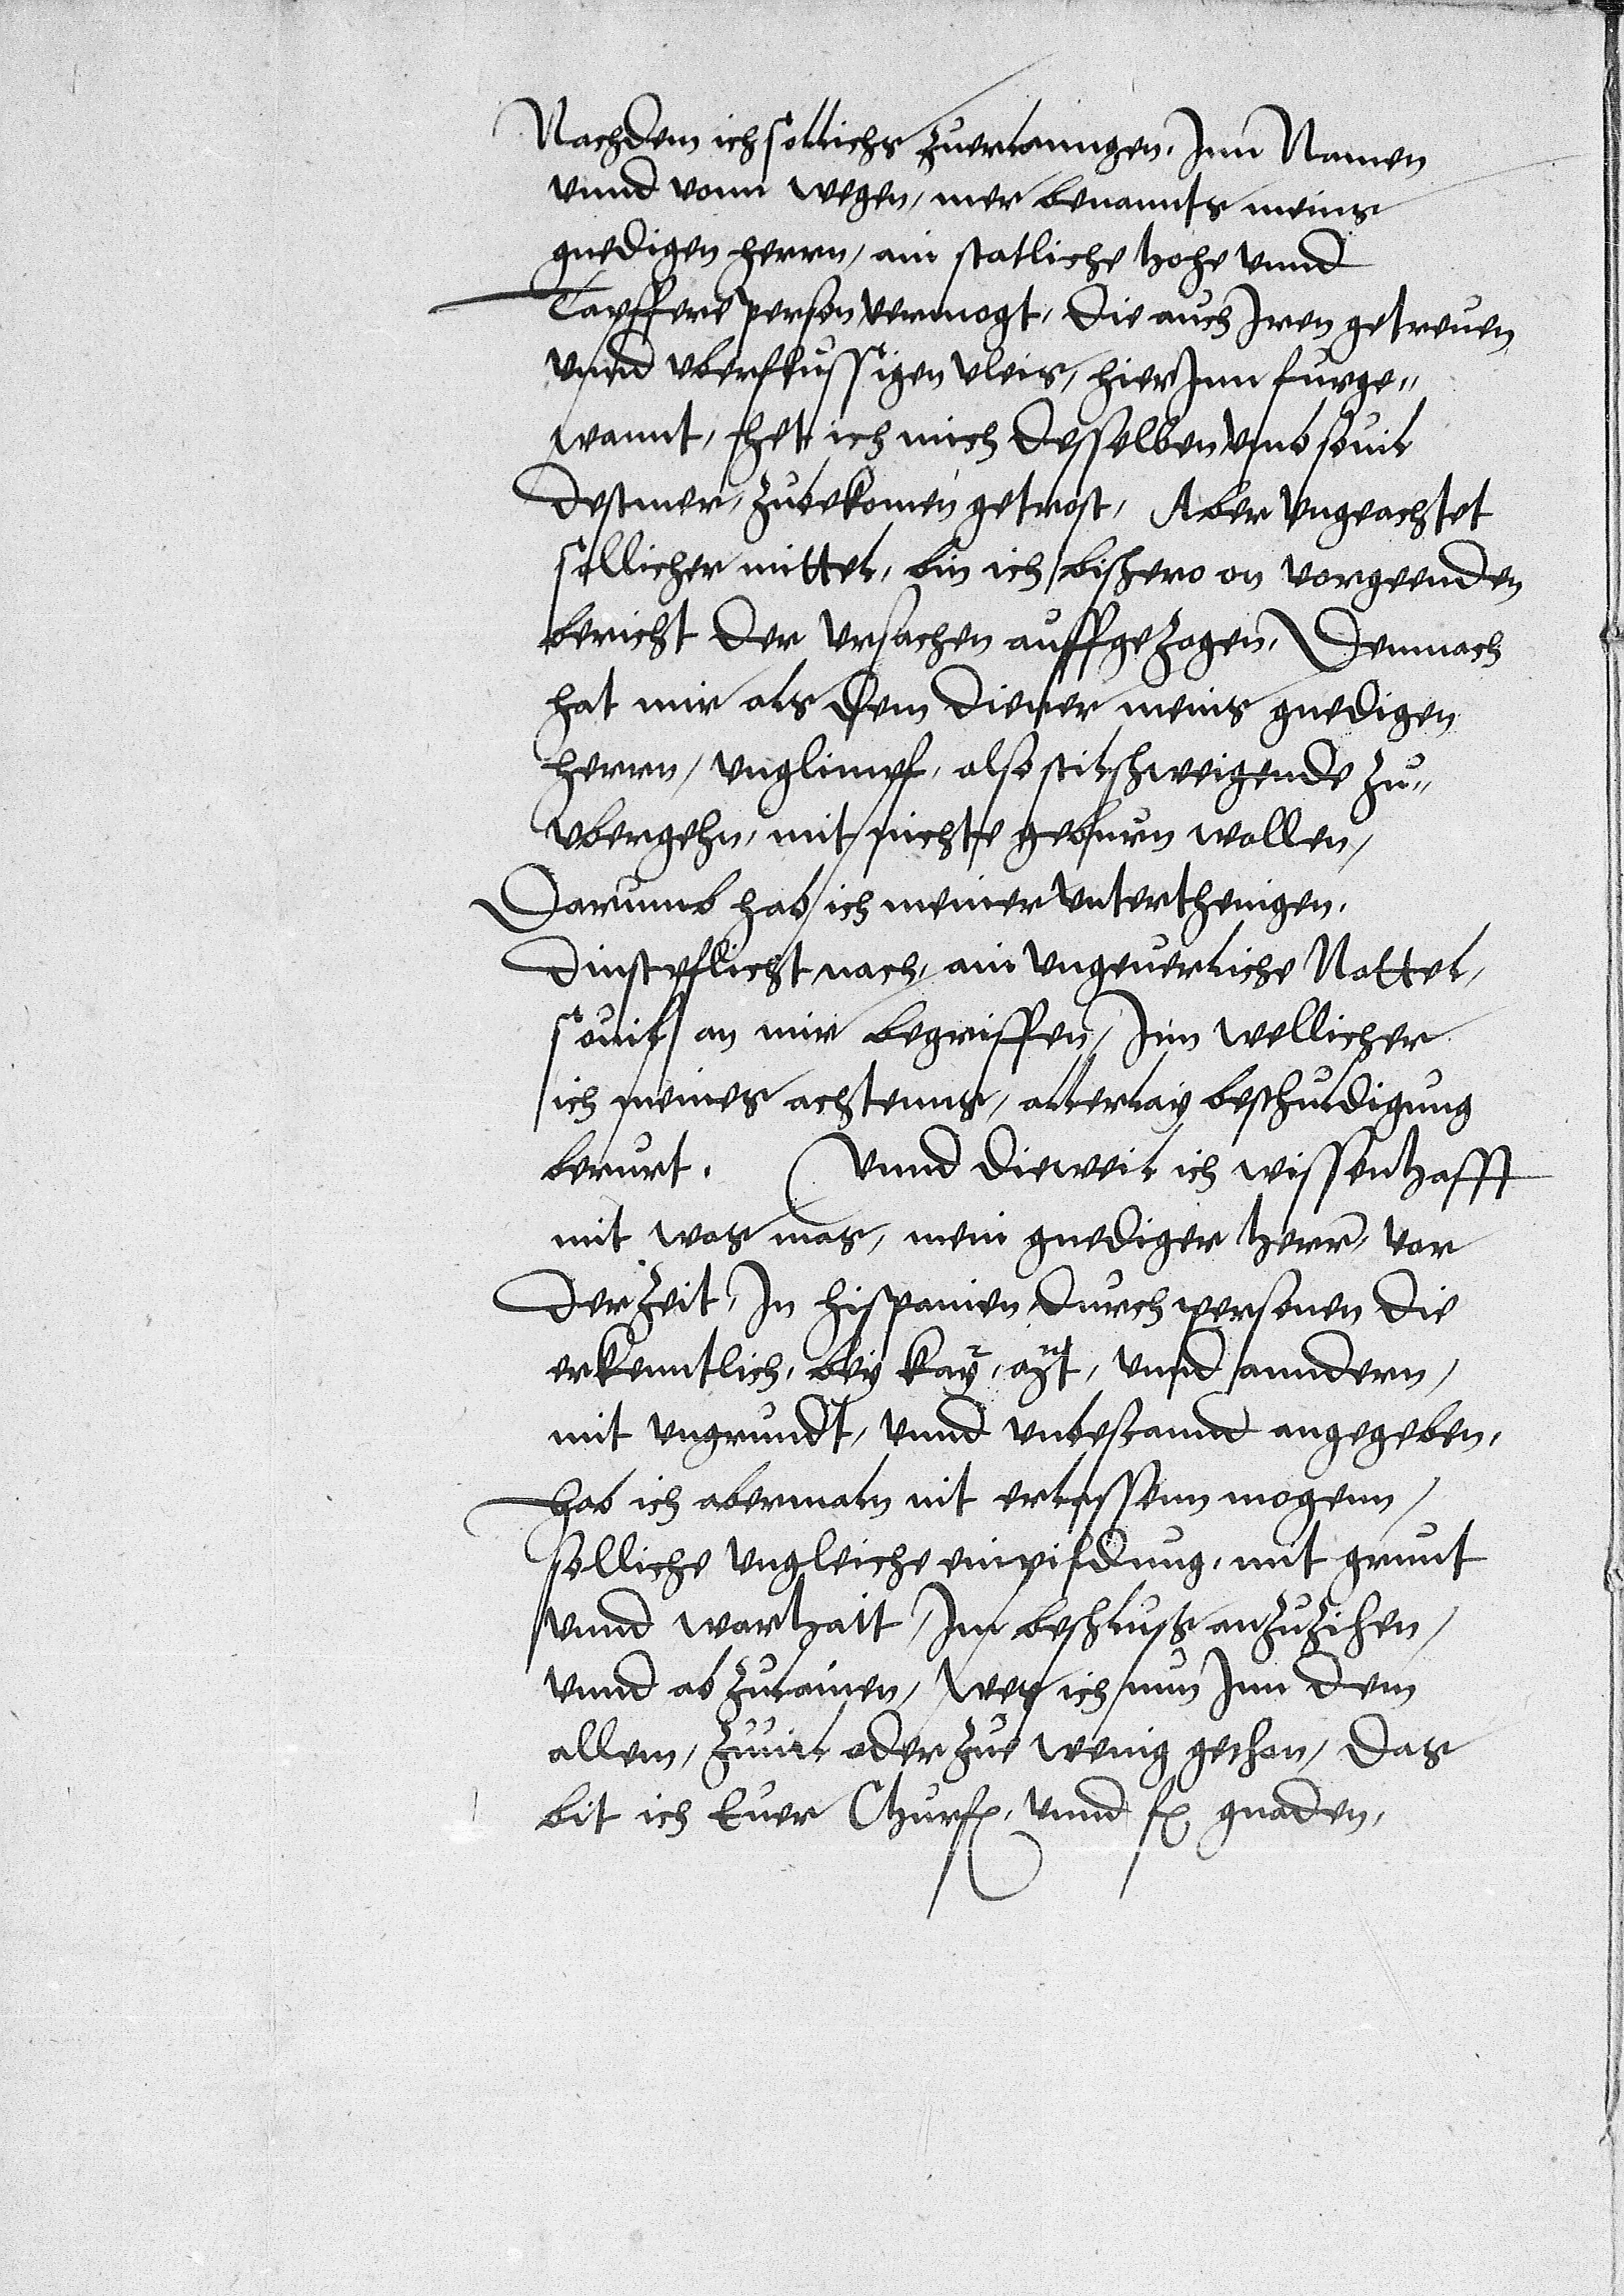 Nachdem ich sollichs Zuerlanngen. Inn Namen
vnnd vonn wegen, mer benannts meins
gnedigen herrn, ain statliche hohe vnnd
Tapffere person vermogt, die auch Iren getreuen
vnnd vberflussigen vleis, hierInn furge„
wannt, Het ich mich desselben vmb souil
destmer, Zubekomen getrost, Aber vngeachtet
sollicher mittel, bin ich bishero on vorgeenden
bericht der vrsachen auffgeZogen, Demnach
hat mir als dem diener meins gnedigen
herrn, vnglimpf, also stilschweigende Zu„
vbergehn, mit nichte geburn wollen,
Darumb hab ich meiner vnterthenigen.
Dinstpflicht nach, ain vngeuerliche Nottel,
souil an mir begriffen, Inn wellicher
ich meines achtenns, allerlay beschuldigung
berurt. Vnnd dieweil ich wissenhafft
mit was mas, mein gnediger herr, vor
der Zeit, In hispanien durch personen die
erkenntlich, bey kay, mt, vnnd anndern,
mit vngrundt, vnnd vnbestannd angegeben,
hab ich abermaln nit erlassenn mogenn,
solliche vngleiche einpildung, mit grunt
vnnd warhait, Im beschluss anZuZihen,
vnnd abZulainen, Wes ich nun Inn dem
allem, Zuuil oder Zue wenig gethan, Das
bit ich Euer Churf, vnnd f gnaden,